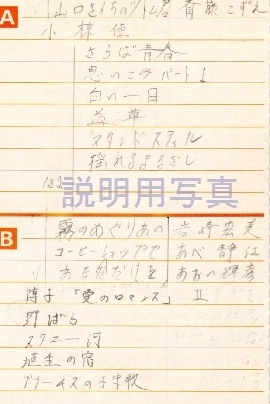 A
山口さんちのツトム君 斉藤こずえ
小椋佳
さらば青春
思いこみパート1
白い一日
スタンドスティル
揺れるまなざし
説明用写真
B
霧のめぐりあい 岩崎宏美
コーヒーショップで あべ静江
あなただけを あおい輝彦
「愛のロマンス」 II
野ばら
スワニー河
埴生の宿
の子守歌